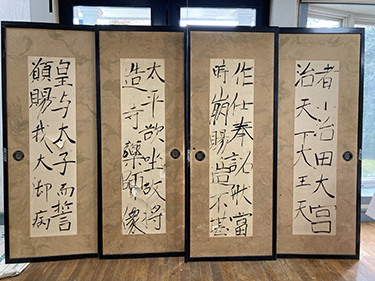 皇与太子而誓
願賜我大御病
太平欲坐故将
造寺藥師像
作仕奉詔然當
時崩賜造不堪
者小治田大宮
治天下大王天